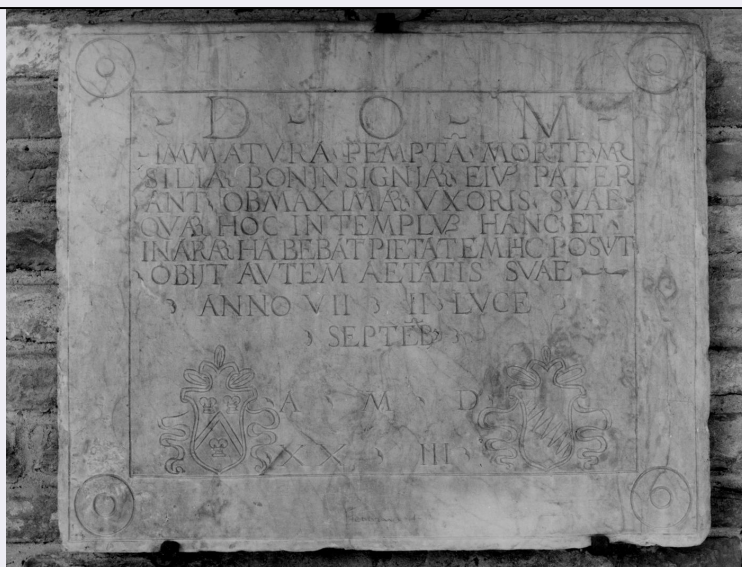 D - O - M -
IMMATVRA PEMPTĀ MORTE MR
SILIĀ BONINSIGNIĀ EIVˢ PATER
ANT OB MAXIMĀ VXORIS SVAE
QVĀ HOC IN TEMPLVꝫ HANC ET
IN ARĀ HABEBAT PIETATEM HC POSVT
OBIJT AVTEM AETATIS SVAE
ANNO VII II LVCE
SEPTĒB
A M D
XX III